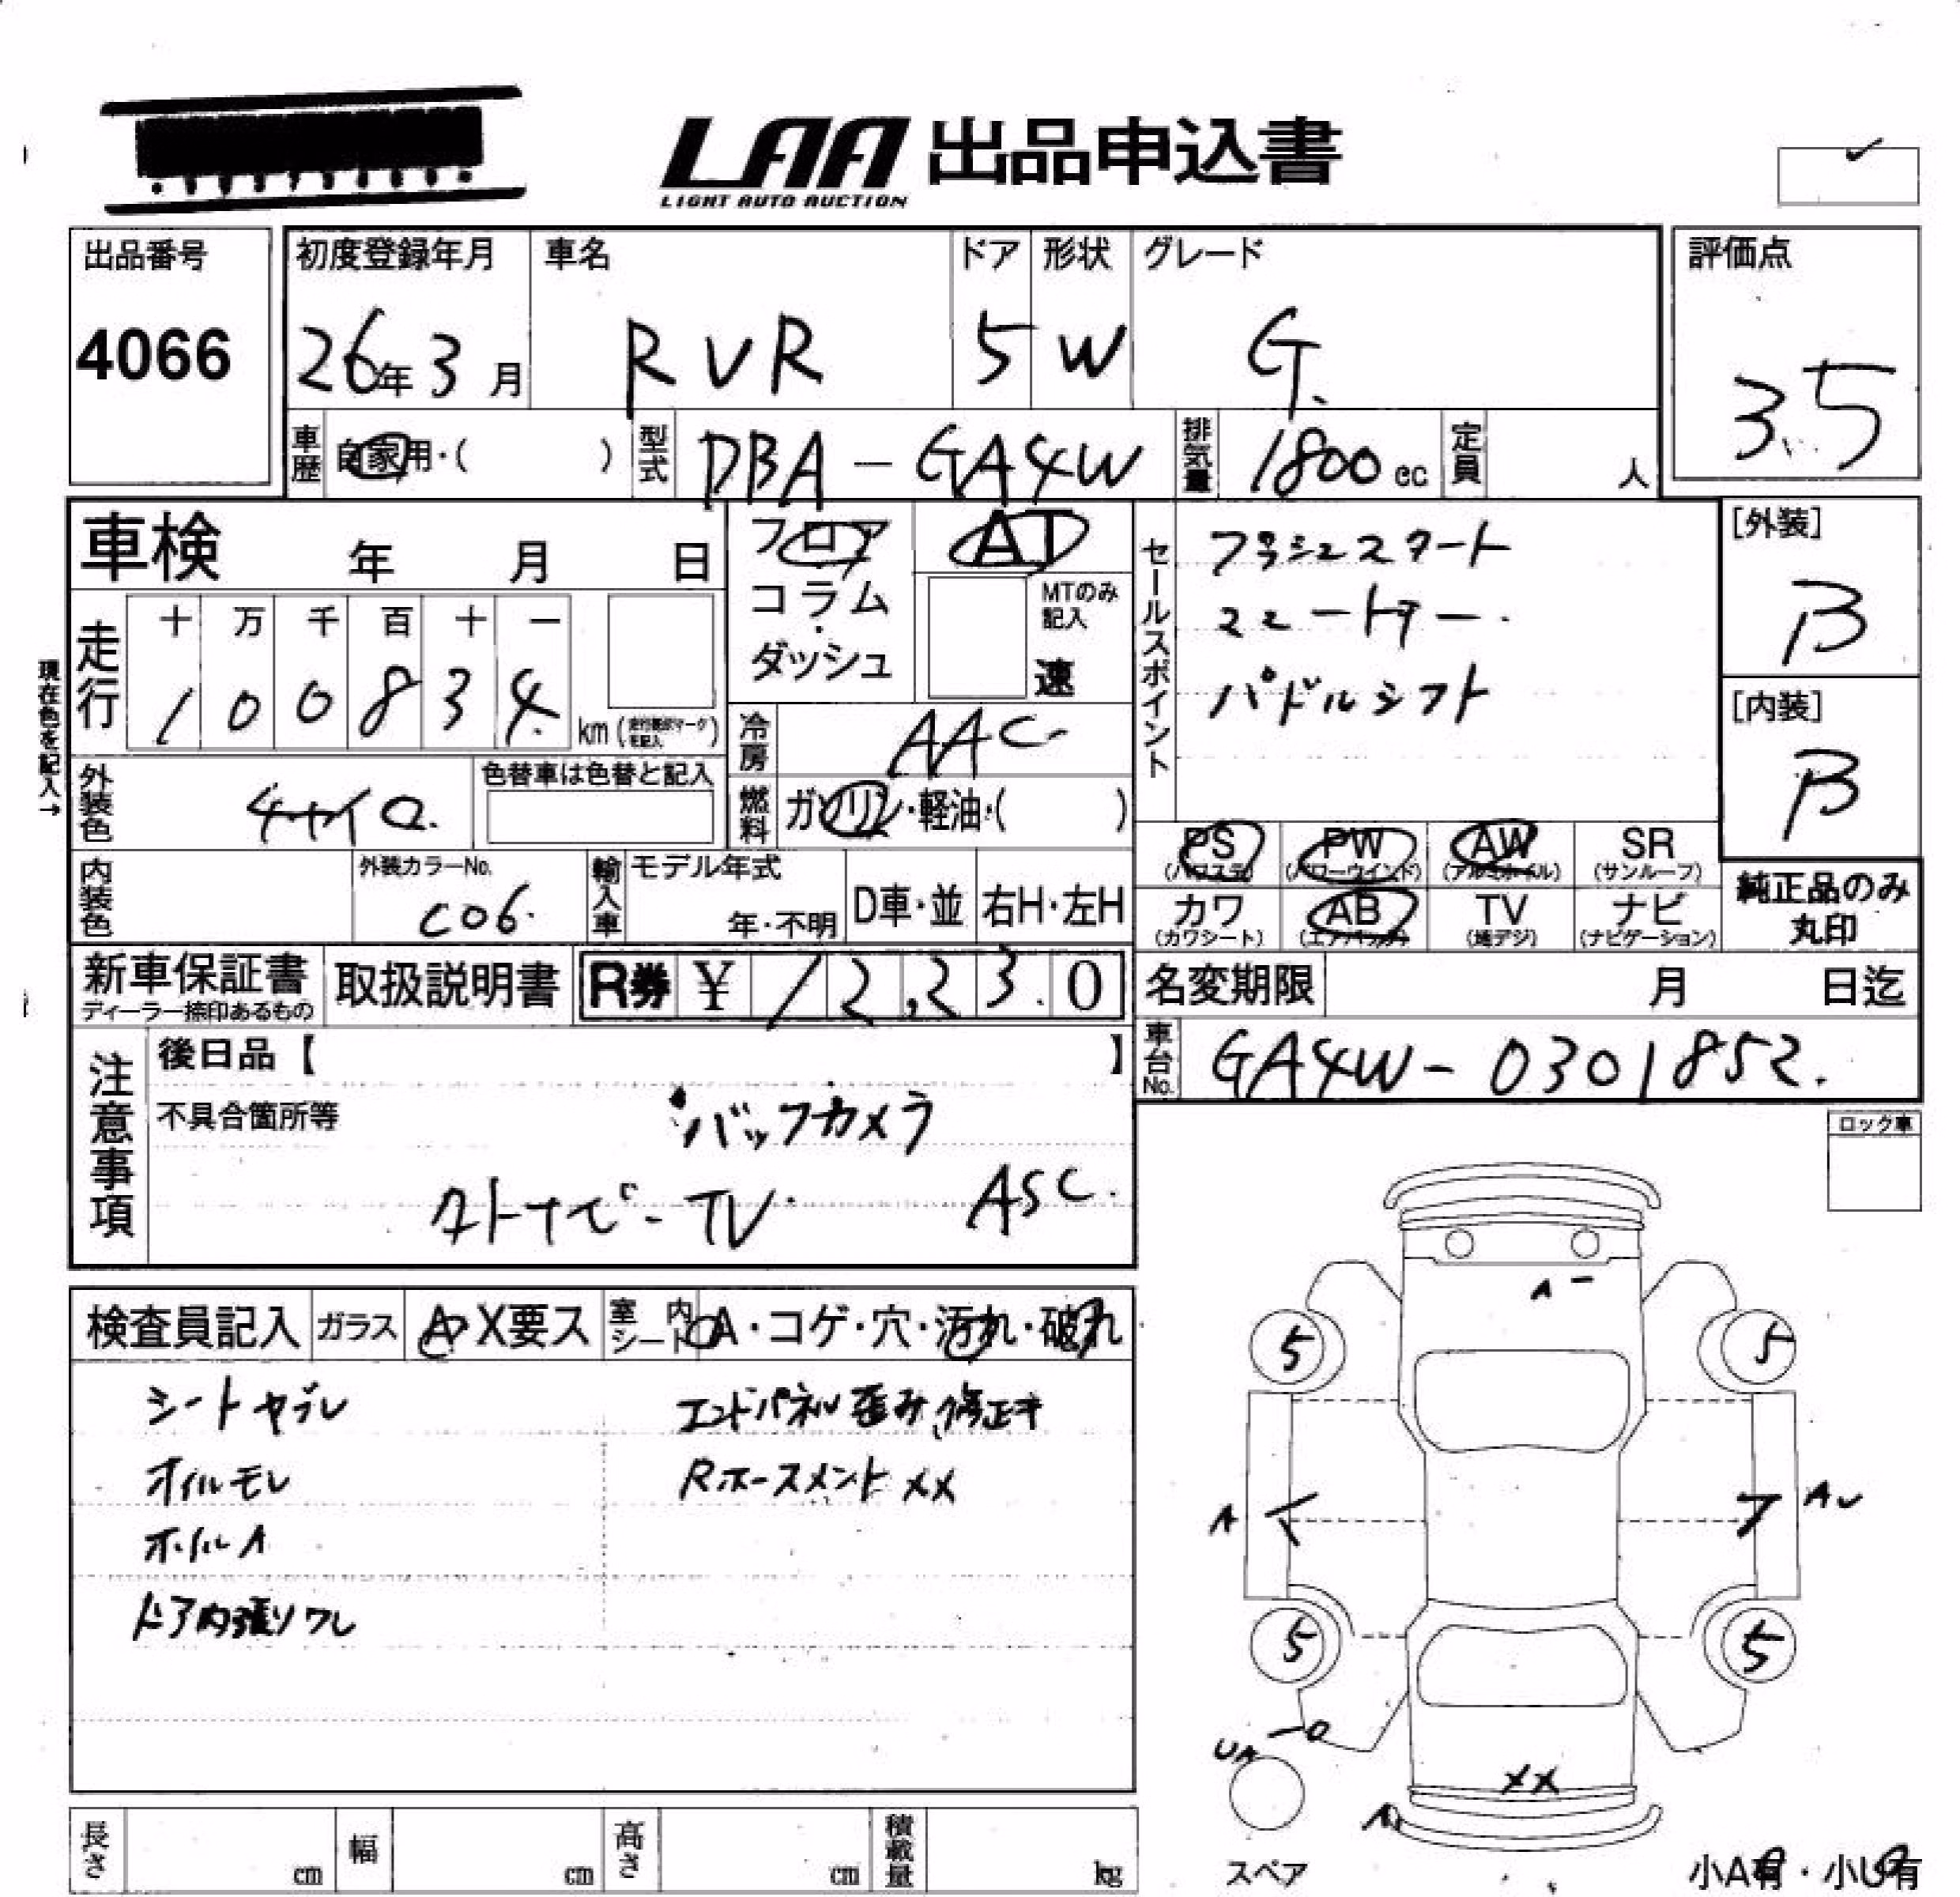 LAA 出品申込書
LIGHT AUTO AUCTION
出品番号
4066
初度登録年月
26年3月
車名
RVR
ドア
5
形状
W
グレード
G.
評価点
3.5
車歴
自家用・( )
型式
DBA-GA4W
排気量
1800cc
定員
人
車検 年 月 日
フロア
コラム
・
ダッシュ
AT
MTのみ
記入
速
セールスポイント
プッシュスタート
スマートキー.
パドルシフト
[外装]
B
[内装]
B
現在色を記入→
走行
十 万 千 百 十 一
1 0 0 8 3 4.
km
冷房
AAC
外装色
色替車は色替と記入
燃料
ガソリン・軽油・( )
PS
(パワステ)
PW
(パワーウインド)
AW
(アルミホイル)
SR
(サンルーフ)
カワ
(カワシート)
AB
(エアバック)
TV
(地デジ)
ナビ
(ナビゲーション)
純正品のみ
丸印
内装色
外装カラーNo.
C06.
輸入車
モデル年式
年・不明
D車・並
右H・左H
新車保証書
ディーラー捺印あるもの
取扱説明書
R券 ¥ 12,23.0
名変期限 月 日迄
車台No.
GA4W-0301852.
注意事項
後日品【 】
不具合箇所等
バックカメラ
ストナビ-TV. ASC.
ロック車
検査員記入
ガラス
A・X要ス
室内
シート
A・コゲ・穴・汚れ・破れ
シートヤブレ
オイルモレ
ホイルA
ドア内張りワレ
エンドパネル歪み修正キ
Rホースメント XX
A
5
5
A
AU
5
5
UA
XX
A
スペア
小A有・小U有
長さ cm
幅 cm
高さ cm
積載量 kg